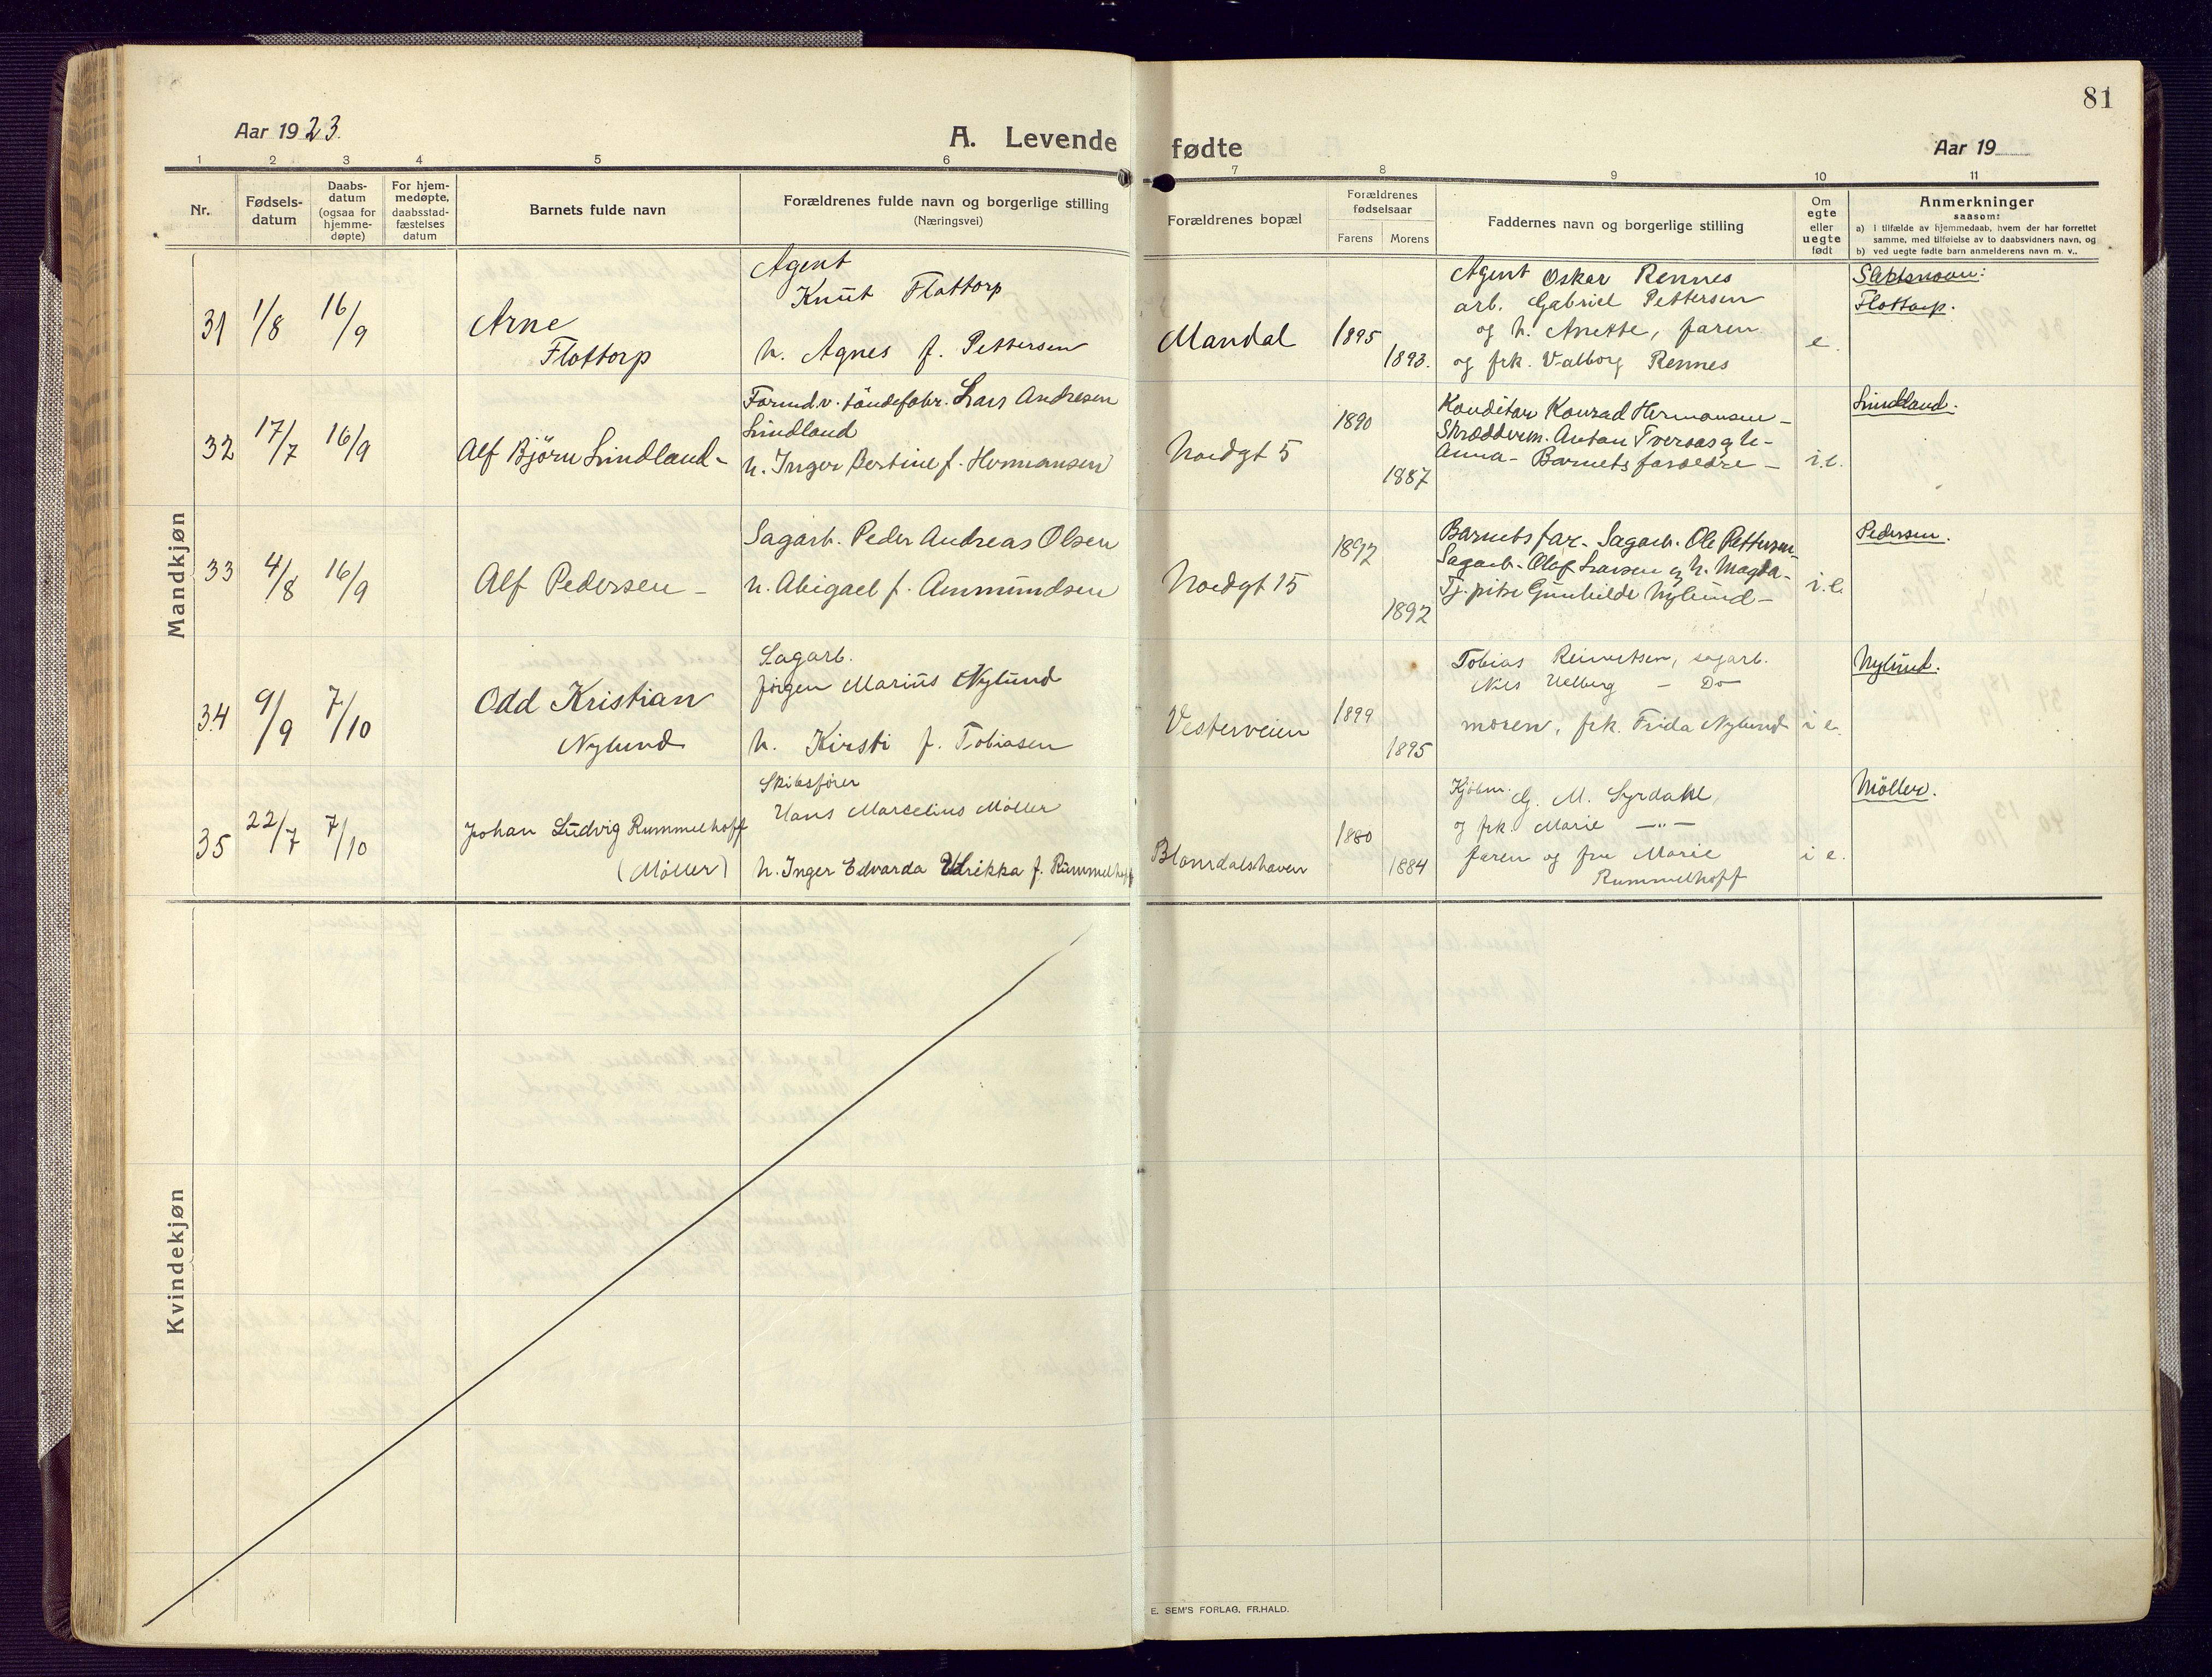 81
Aar 1923.
A. Levende fødte
Aar 19
1 2 3 4 5 6 7 8 9 10 11
Nr.
Fødsels-
datum
Daabs-
datum
(ogsaa for
hjemme-
døpte)
For hjem-
medøpte,
daabsstad-
fæstelses
datum
Barnets fulde navn
Forældrenes fulde navn og borgerlige stilling
(Næringsvei)
Forældrenes bopæl
Forældrenes
fødselsaar
Farens Morens
Faddernes navn og borgerlige stilling
Om
egte
eller
uegte
født
Anmerkninger
saasom:
a) I tilfælde av hjemmedaab, hvem der har forrettet
samme, med tilføielse av to daabsvidners navn, og
b) ved uegte fødte barn anmelderens navn m. v..
Mandkjøn
31 1/8 16/9
Arne
Flottorp
Agent
Knut Flottorp
h. Agnes f. Pettersen
Mandal
1895
1893.
Agent Oskar Rennes
arb. Gabriel Pettersen
og h. Anette, faren
og frk. Valborg Rennes
e.
Slektsnavn:
Flottorp.
32 17/7 16/9
Alf Björn Lindland -
Formd. v. töndefabr. Lars Andresen
Lindland
h. Inger Bertine f. Hermansen
Nordgt 5
1890
1887
Konditor Konrad Hermansen -
Skrædderm. Anton Tversas g h -
Anna - Barnets forældre -
i.e.
Lindland.
33 4/8 16/9
Alf Pedersen -
Sagarb. Peder Andreas Olsen
h. Abigael f. Ammundsen
Nordgt 15
1892
1892
Barnets far - Sagarb. Ole Pettersen -
Sagarb. Olaf Larsen og h. Magda -
Tj. pike Gunhilde Nylund -
i.e.
Pedersen.
34 9/9 7/10
Odd Kristian
Nylund
Sagarb.
Jörgen Marius Nylund
h. Kirsti f. Tobiasen
Vesterveien
1899
1895
Tobias Reiertsen, sagarb.
Nils Uelberg - Do
moren, frk. Frida Nylund
i e.
Nylund.
35 22/7 7/10
Johan Ludvig Rummelhoff
(Möller)
Skibsfører
Hans Marcelius Möller
h. Inger Edvarda Ulrikka f. Rummelhoff
Blomdalshaven
1880
1884
Kjøbm. G. M. Syrdahl,
og frk. Marie -"-
faren og fru Marie
Rummelhoff
i e.
Möller.
Kvindekjøn
E. SEM'S FORLAG, FR.HALD.